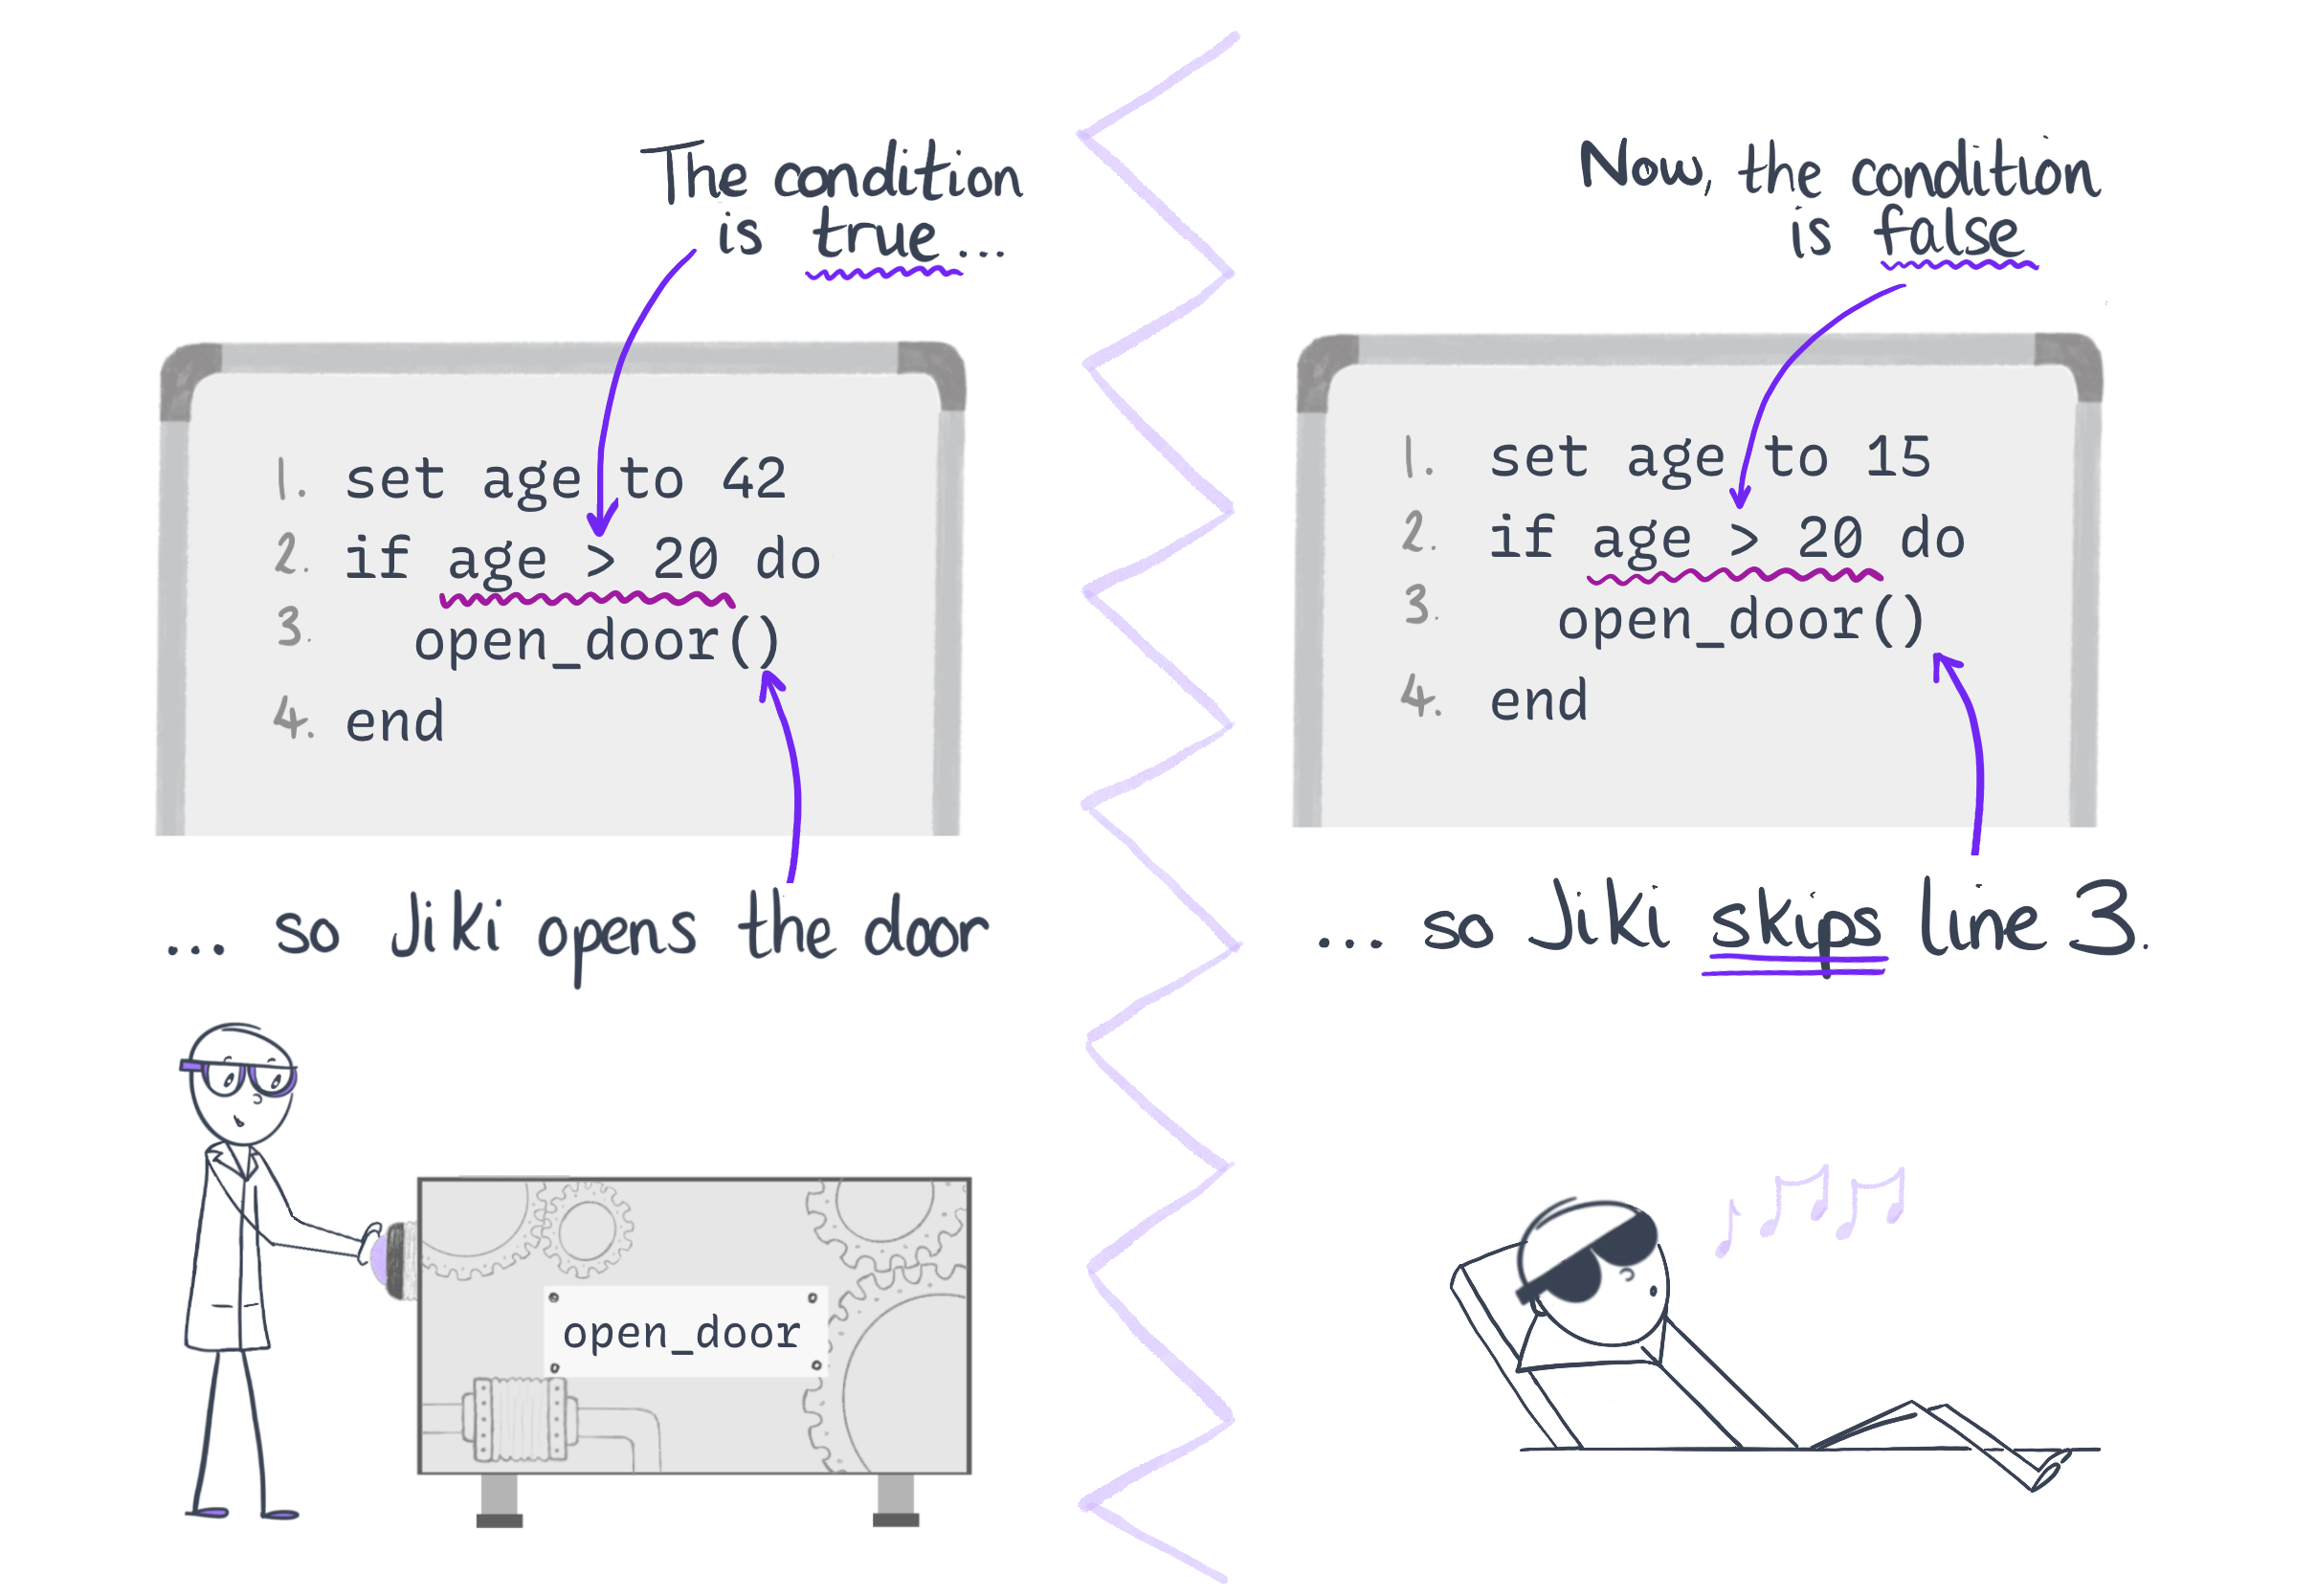 The condition
is true...
1. set age to 42
2. if age > 20 do
3. open_door()
4. end
... so Jiki opens the door
open_door
Now, the condition
is false
1. set age to 15
2. if age > 20 do
3. open_door()
4. end
... so Jiki skips line 3.